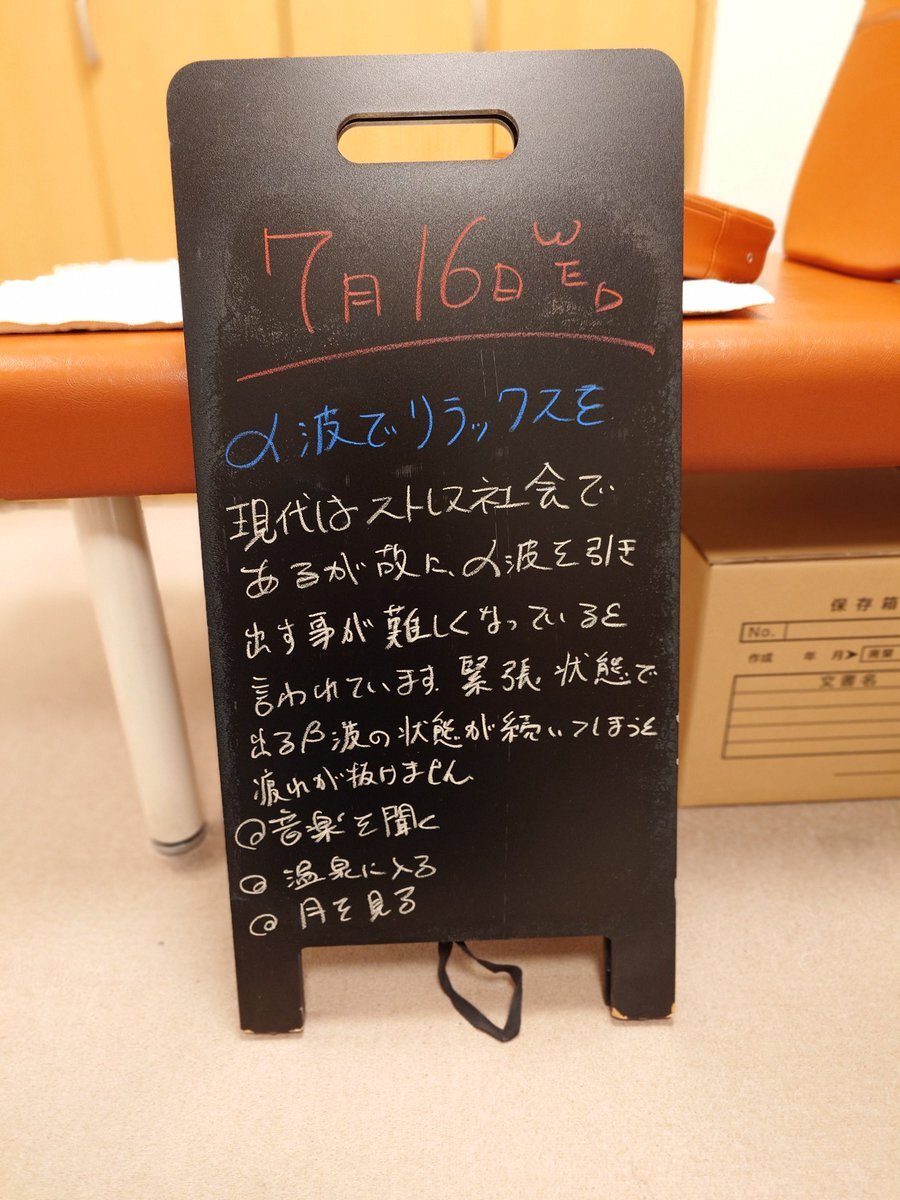 7月16日 WED
α波でリラックスを
現代はストレス社会で
あるが故に、α波を引き
出す事が難しくなっていると
言われています。緊張状態で
出るβ波の状態が続いてしまうと
疲れが抜けません。
◎音楽を聞く
◎温泉に入る
◎月を見る
保存箱
No.
作成 年 月➤廃棄
文書名